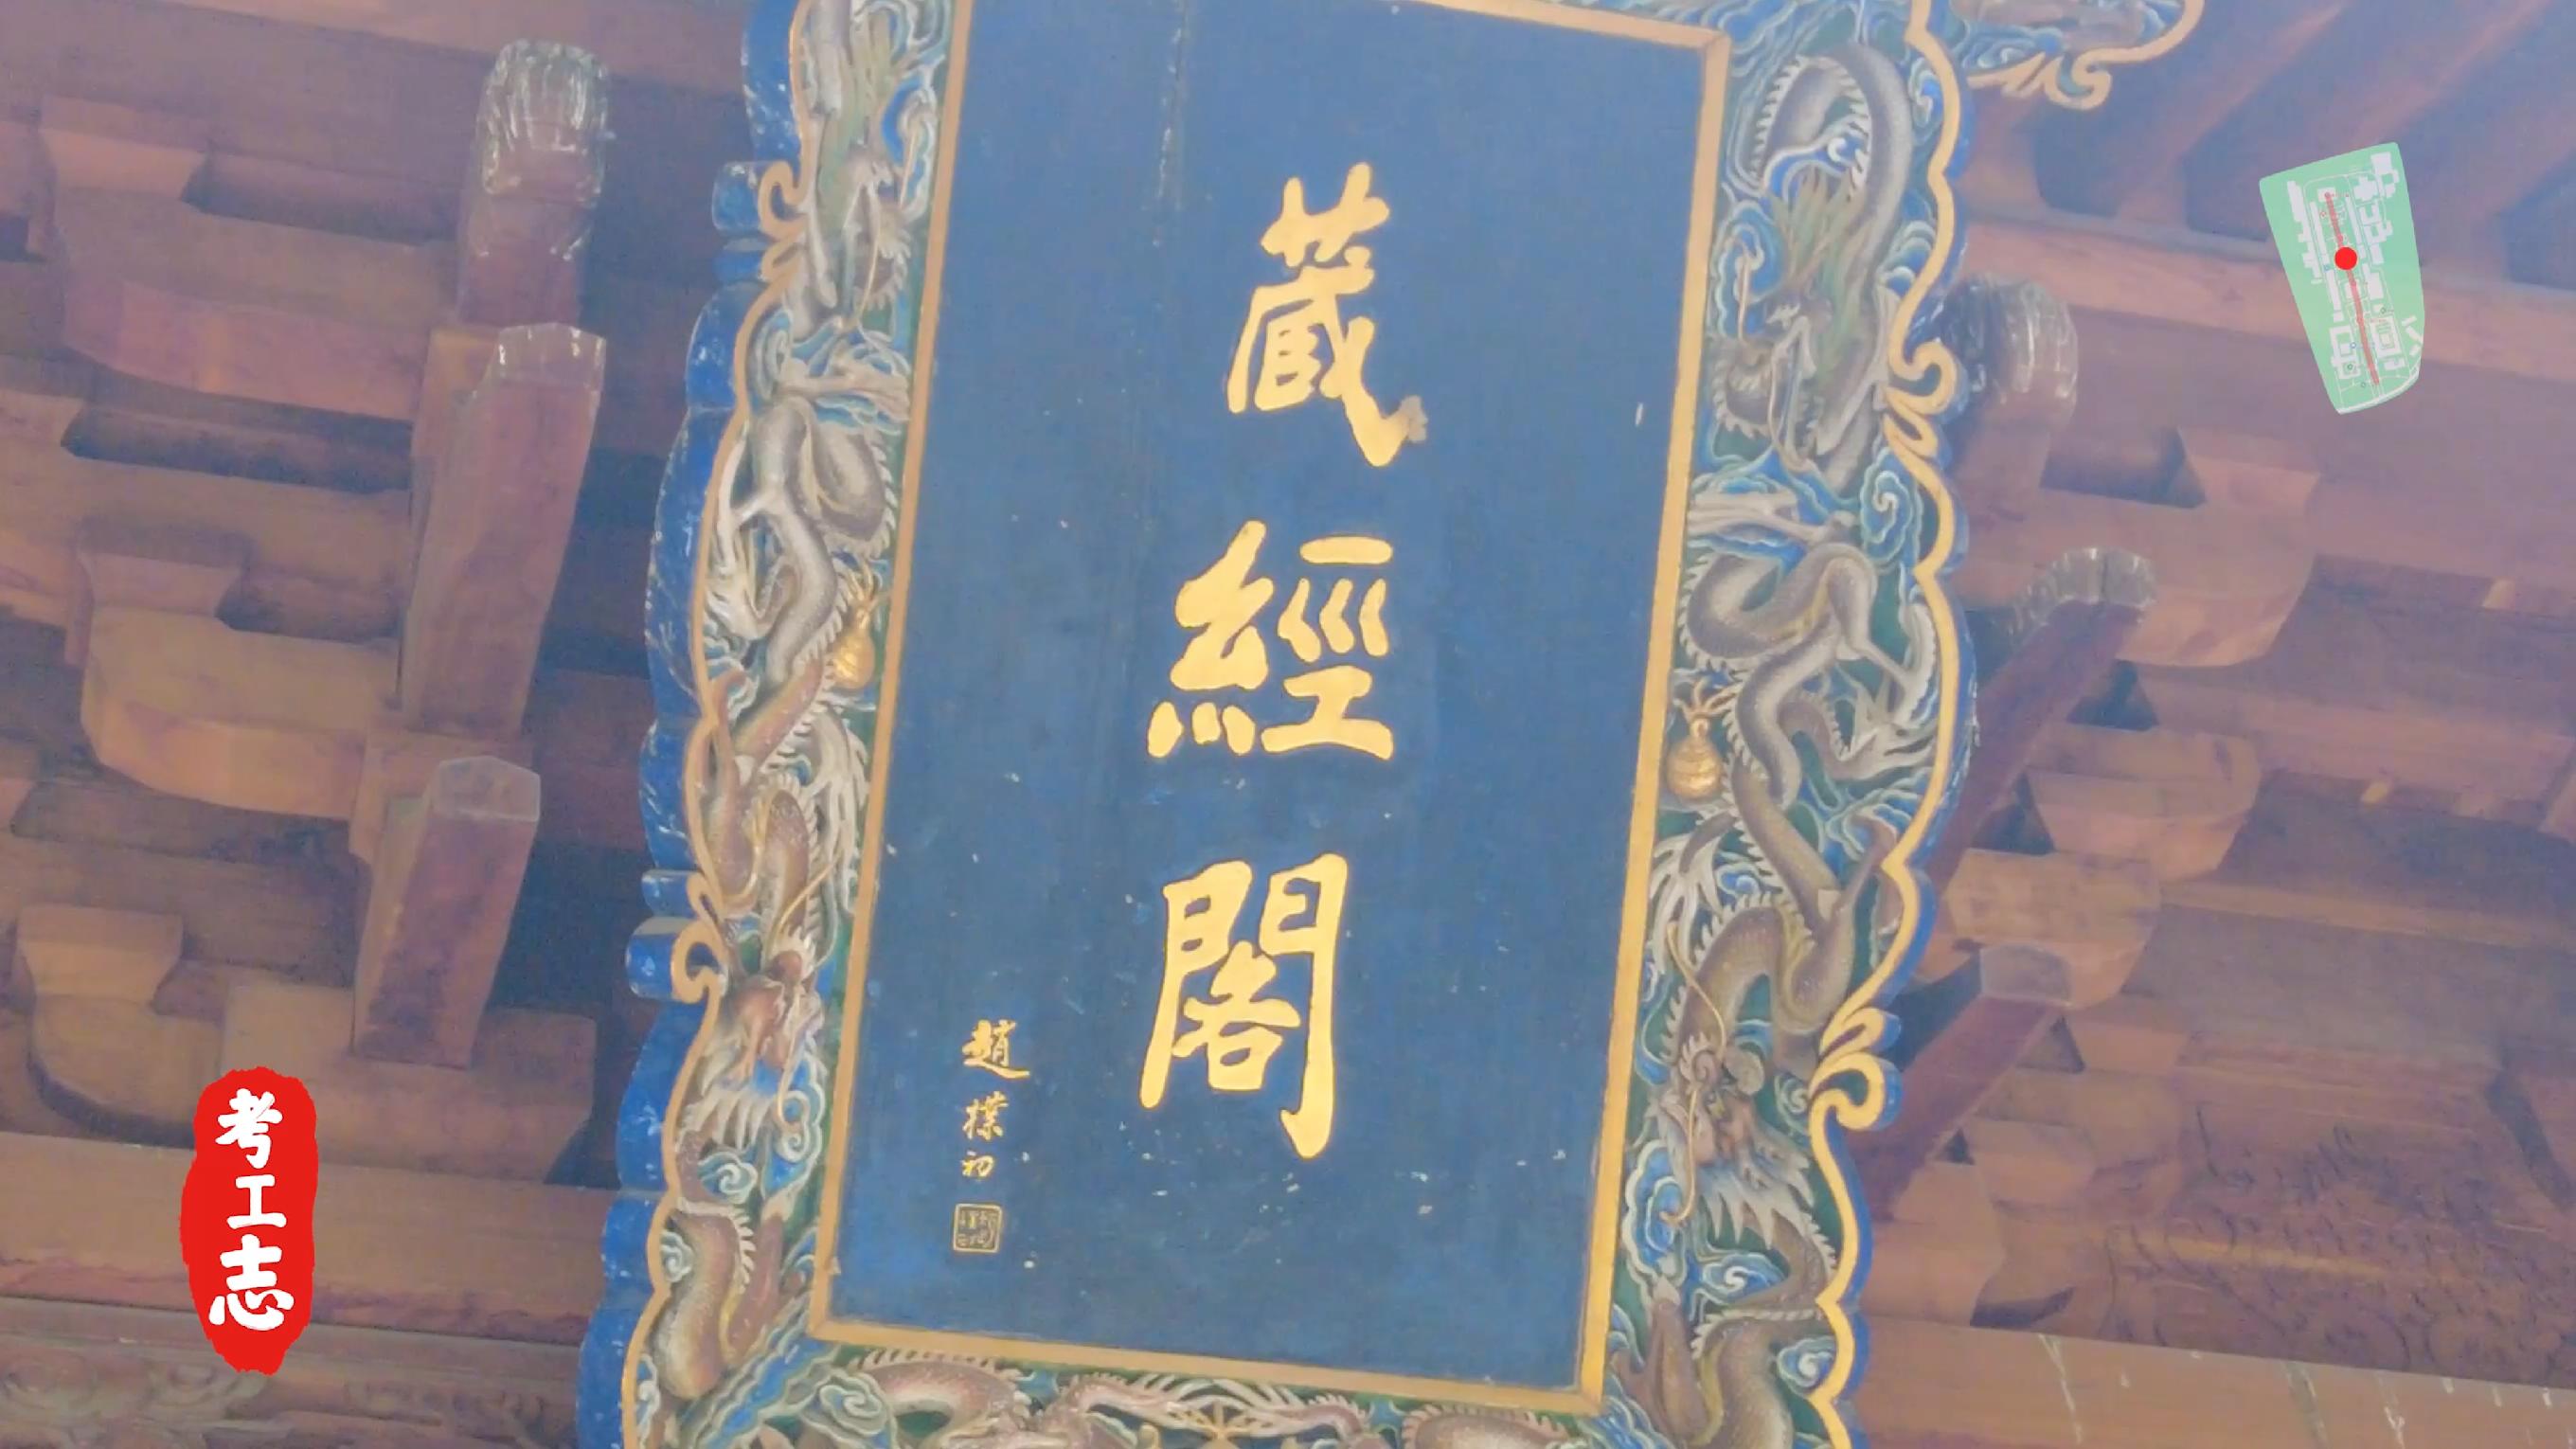 藏經閣
趙樸初
考工志